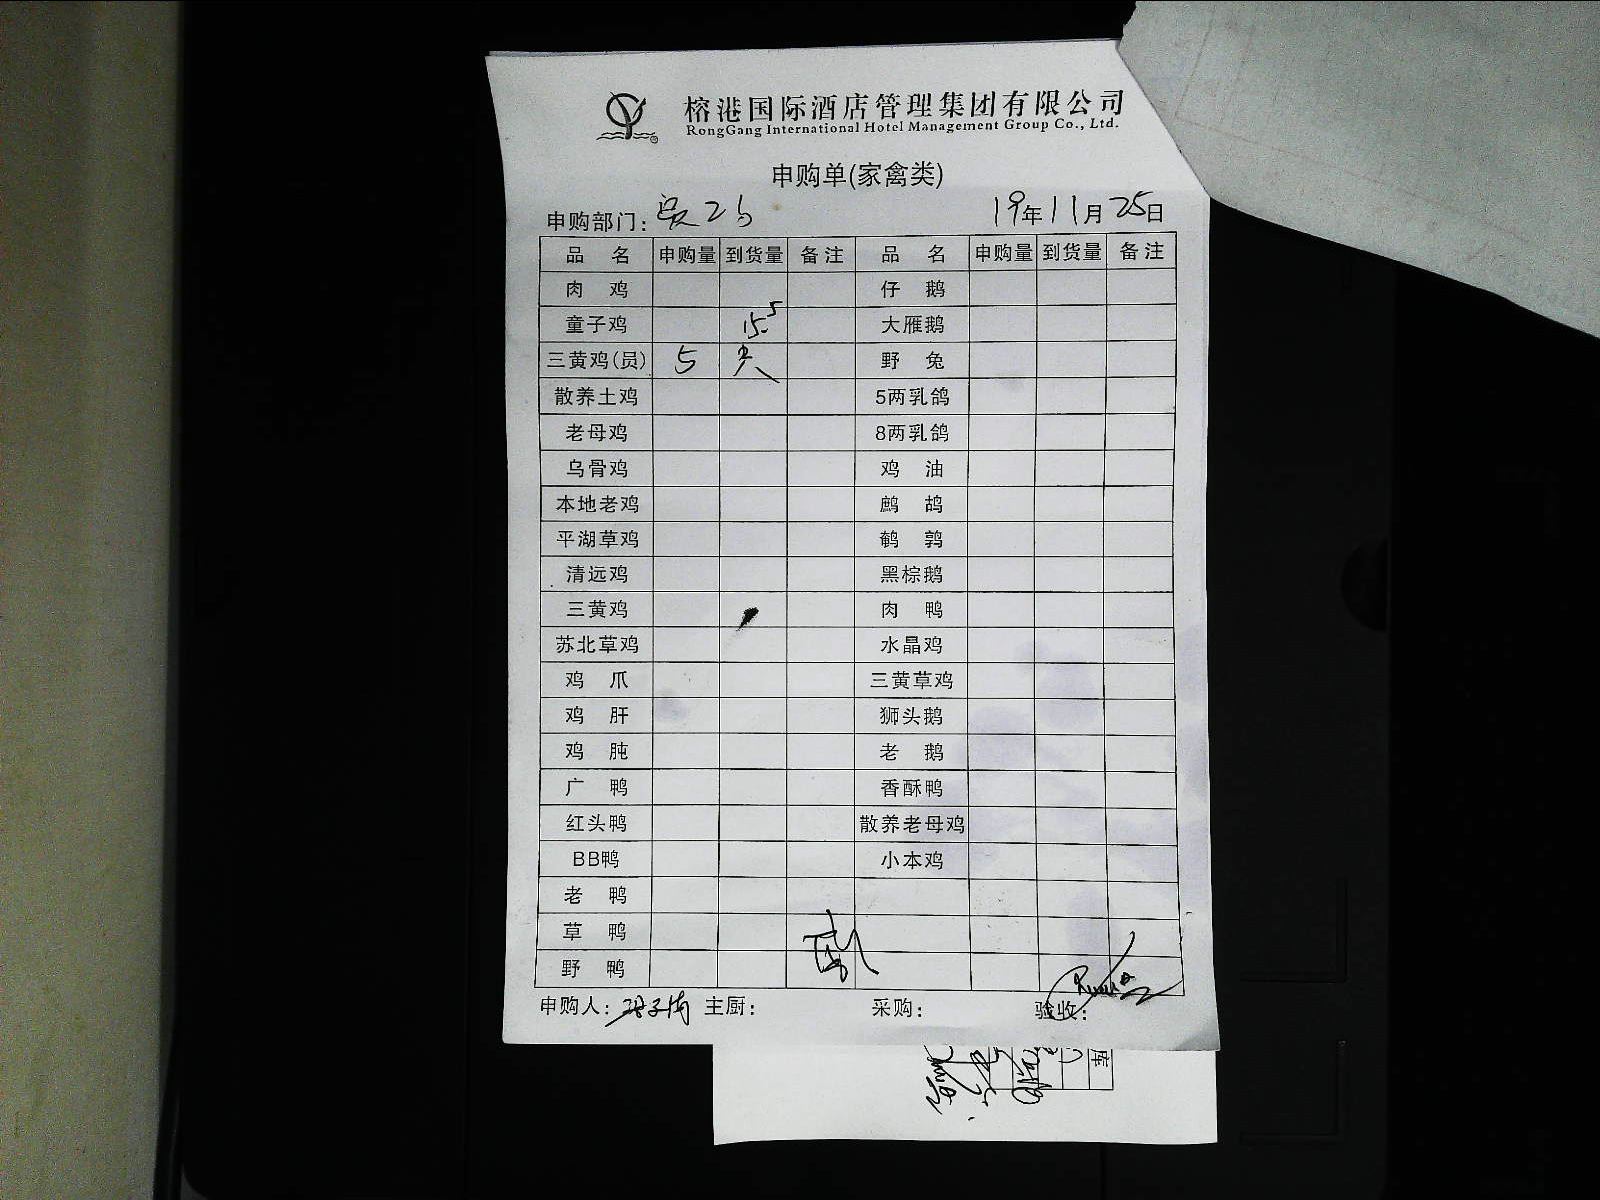 榕港国际酒店管理集团有限公司
RongGang International Hotel Management Group Co., Ltd.
申购单(家禽类)
申购部门: 19年11月25日
品 名 申购量 到货量 备注 品 名 申购量 到货量 备注
肉 鸡 仔 鹅
童子鸡 15.5 大雁鹅
三黄鸡(员) 5 野 兔
散养土鸡 5两乳鸽
老母鸡 8两乳鸽
乌骨鸡 鸡 油
本地老鸡 鹧 鸪
平湖草鸡 鹌 鹑
清远鸡 黑棕鹅
三黄鸡 肉 鸭
苏北草鸡 水晶鸡
鸡 爪 三黄草鸡
鸡 肝 狮头鹅
鸡 肫 老 鹅
广 鸭 香酥鸭
红头鸭 散养老母鸡
BB鸭 小本鸡
老 鸭
草 鸭
野 鸭
申购人: 主厨: 采购: 验收:
库